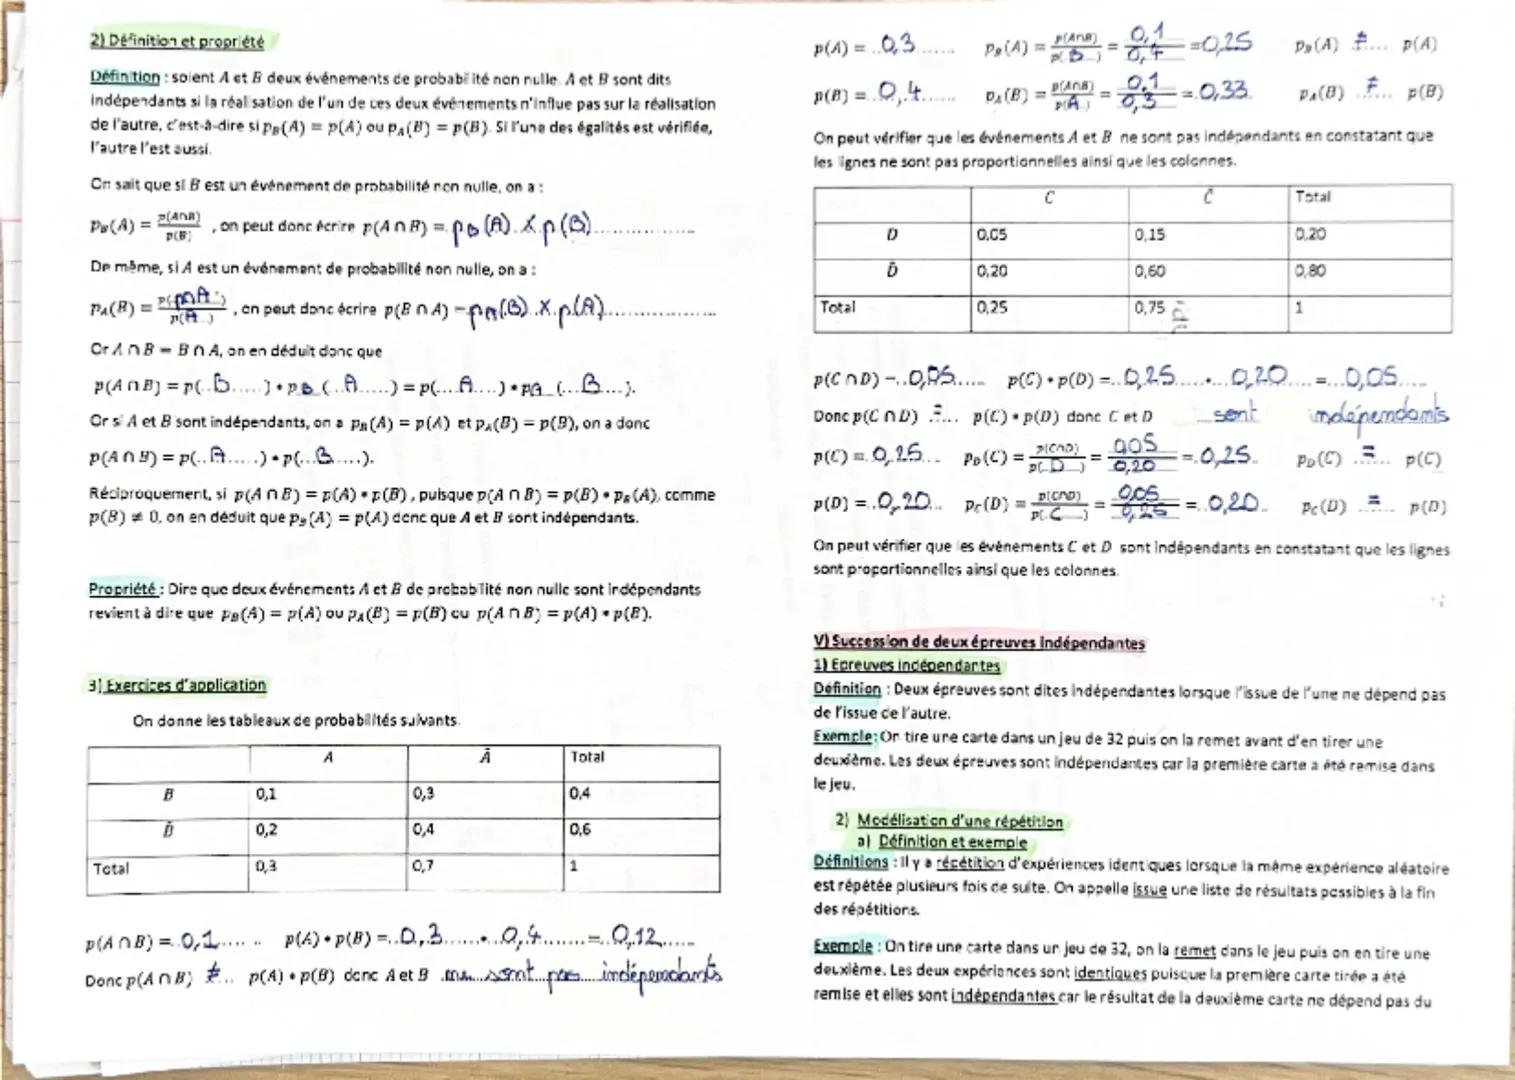 2) Définition et propriété
Définition : soient A et B deux événements de probabilité non nulle. A et B sont dits
indépendants si la réalisation de l'un de ces deux événements n'influe pas sur la réalisation
de l'autre, c'est-à-dire si p_B(A) = p(A) ou p_A(B) = p(B). Si l'une des égalités est vérifiée,
l'autre l'est aussi.
On sait que si B est un événement de probabilité non nulle, on a :
p_B(A) = p(A∩B)/p(B) , on peut donc écrire p(A ∩ B) = p_B(A) x p(B)
De même, si A est un événement de probabilité non nulle, on a :
p_A(B) = p(B∩A)/p(A) , on peut donc écrire p(B ∩ A) = p_A(B) x p(A)
Or A ∩ B = B ∩ A, on en déduit donc que
p(A ∩ B) = p(..B.....) * p_B(..A.....) = p(...A....) * p_A(...B....).
Or si A et B sont indépendants, on a p_B(A) = p(A) et p_A(B) = p(B), on a donc
p(A ∩ B) = p(..A.....) * p(...B.....).
Réciproquement, si p(A ∩ B) = p(A) * p(B), puisque p(A ∩ B) = p(B) * p_B(A), comme
p(B) ≠ 0, on en déduit que p_B(A) = p(A) donc que A et B sont indépendants.
Propriété : Dire que deux événements A et B de probabilité non nulle sont indépendants
revient à dire que p_B(A) = p(A) ou p_A(B) = p(B) ou p(A ∩ B) = p(A) * p(B).
3) Exercices d'application
On donne les tableaux de probabilités suivants.
A Ā Total
B 0,1 0,3 0,4
B̄ 0,2 0,4 0,6
Total 0,3 0,7 1
p(A ∩ B) = 0,1 p(A) * p(B) = 0,3 * 0,4 = 0,12
Donc p(A ∩ B) ≠ p(A) * p(B) donc A et B ne sont pas indépendants
p(A) = 0,3 p_B(A) = p(A∩B)/p(B) = 0,1/0,4 = 0,25 p_B(A) ≠ p(A)
p(B) = 0,4 p_A(B) = p(A∩B)/p(A) = 0,1/0,3 = 0,33 p_A(B) ≠ p(B)
On peut vérifier que les événements A et B ne sont pas indépendants en constatant que
les lignes ne sont pas proportionnelles ainsi que les colonnes.
C C̄ Total
D 0,05 0,15 0,20
D̄ 0,20 0,60 0,80
Total 0,25 0,75 1
p(C ∩ D) = 0,05 p(C) * p(D) = 0,25 * 0,20 = 0,05
Donc p(C ∩ D) = p(C) * p(D) donc C et D sont indépendants
p(C) = 0,25 p_D(C) = p(C∩D)/p(D) = 0,05/0,20 = 0,25 p_D(C) = p(C)
p(D) = 0,20 p_C(D) = p(C∩D)/p(C) = 0,05/0,25 = 0,20 p_C(D) = p(D)
On peut vérifier que les événements C et D sont indépendants en constatant que les lignes
sont proportionnelles ainsi que les colonnes.
V) Succession de deux épreuves indépendantes
1) Epreuves indépendantes
Définition : Deux épreuves sont dites indépendantes lorsque l'issue de l'une ne dépend pas
de l'issue de l'autre.
Exemple : On tire une carte dans un jeu de 32 puis on la remet avant d'en tirer une
deuxième. Les deux épreuves sont indépendantes car la première carte a été remise dans
le jeu.
2) Modélisation d'une répétition
a) Définition et exemple
Définitions : Il y a répétition d'expériences identiques lorsque la même expérience aléatoire
est répétée plusieurs fois de suite. On appelle issue une liste de résultats possibles à la fin
des répétitions.
Exemple : On tire une carte dans un jeu de 32, on la remet dans le jeu puis on en tire une
deuxième. Les deux expériences sont identiques puisque la première carte tirée a été
remise et elles sont indépendantes car le résultat de la deuxième carte ne dépend pas du